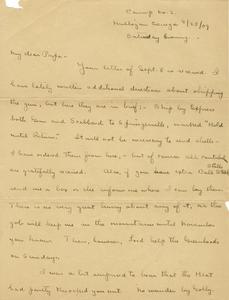 Camp No. 2.
9/25/09
Saturday Evening.
My dear Papa -
Your letter of Sept. 8 is received. I
have lately written additional directions about shipping
the gun, but here they are in brief; - Ship by Express
both Gun and Scabbard to Springerville, marked "Hold
until Return". It will not be necessary to send shells -
I have ordered them from here, - but of course all
shells are gratefully received. Also, if you have extra
send me a box or else inform me where I can buy them.
There is no very great hurry about any of it, as the
job will keep me in the mountains until November
you know. Then, however, Lord help the
on Sundays.
I was a bit surprised to hear that the Meat
had Knocked you out. No wonder by Golly.